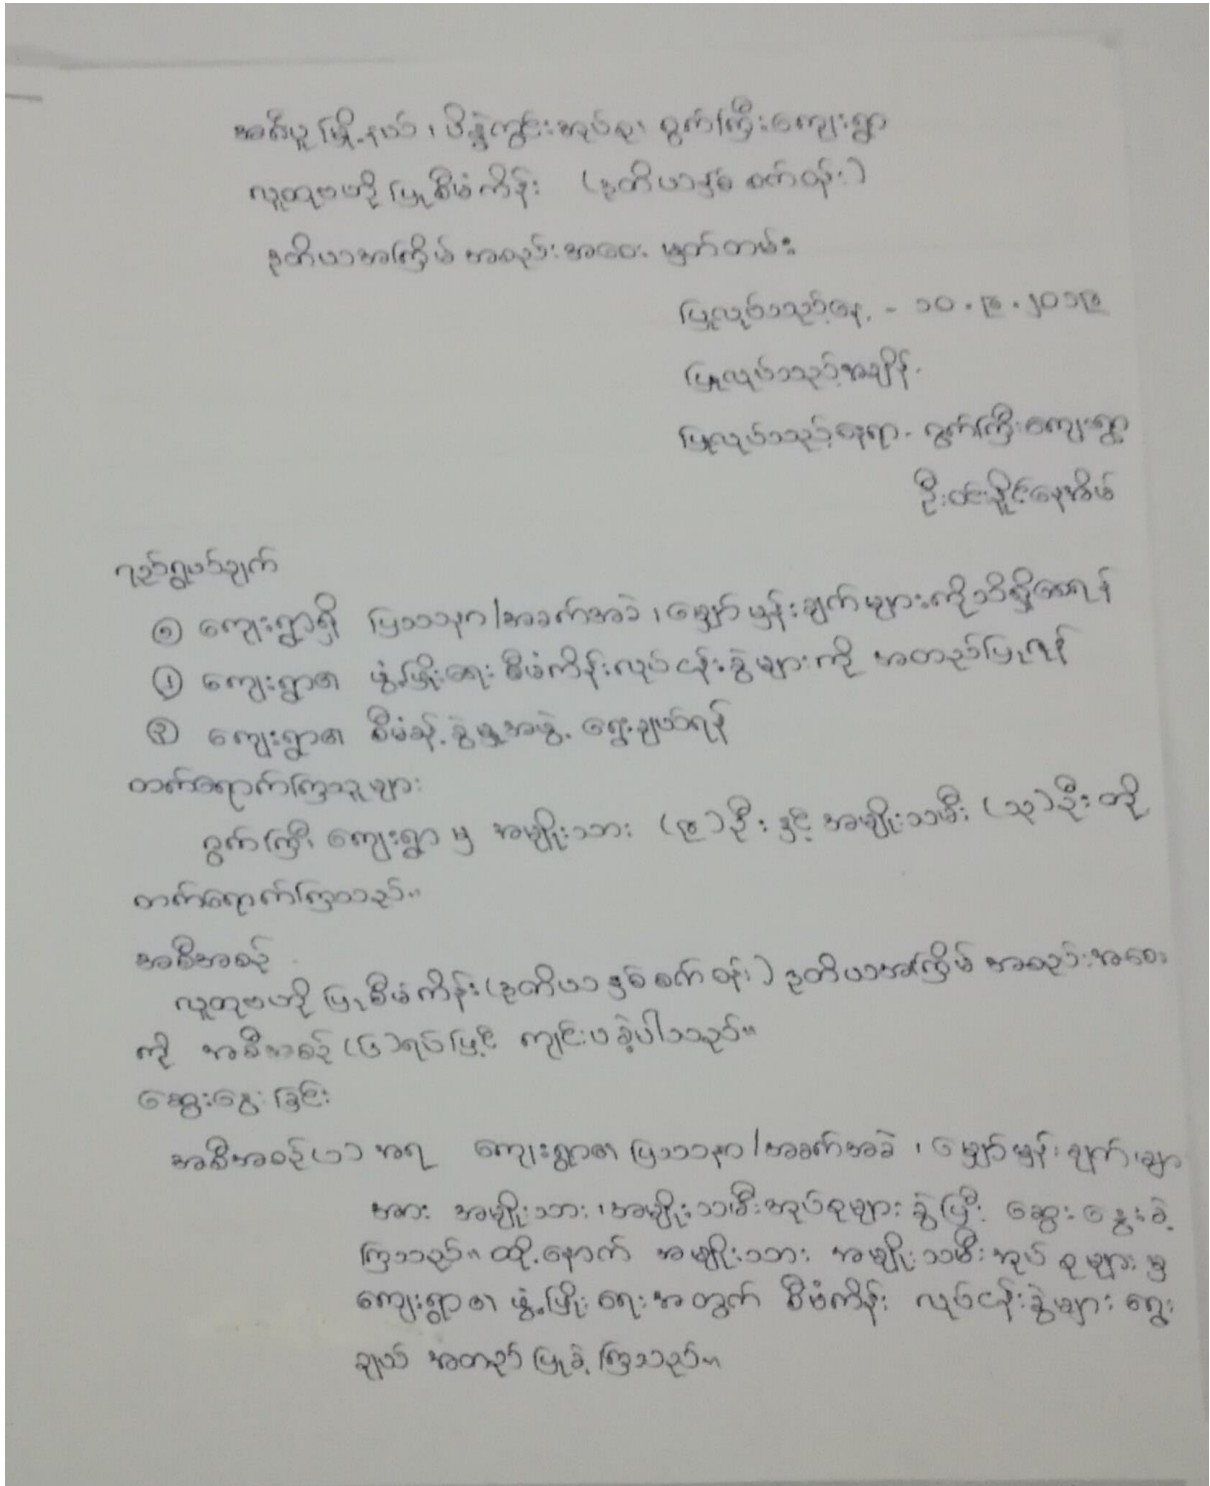 အင်္ပူမြို့နယ်၊ ပိန္နဲကွင်းအုပ်စု၊ ဂွက်ကြီးကျေးရွာ
လူထုဗဟိုပြုစီမံကိန်း (ဒုတိယနှစ် စက်ဝန်း)
ဒုတိယအကြိမ် အစည်းအဝေး မှတ်တမ်း
ပြုလုပ်သည့်နေ့ - ၁၀.၉.၂၀၁၉
ပြုလုပ်သည့်အချိန်-
ပြုလုပ်သည့်နေရာ- ဂွက်ကြီးကျေးရွာ
ဦးဝင်းနိူင်နေအိမ်
ရည်ရွယ်ချက်
၁ ကျေးရွာရှိ ပြဿနာ/အခက်အခဲ၊ မျှော်မှန်းချက်များကိုသိရှိစေရန်
၂ ကျေးရွာ၏ ဖွံ့ဖြိုးရေး စီမံကိန်းလုပ်ငန်းခွဲများကို အတည်ပြုရန်
၃ ကျေးရွာ၏ စီမံခန့်ခွဲမှုအဖွဲ့ ရွေးချယ်ရန်
တက်ရောက်ကြသူများ
ဂွက်ကြီး ကျေးရွာမှ အမျိုးသား (၉)ဦး နှင့် အမျိုးသမီး (၁၃)ဦး တို့
တက်ရောက်ကြသည်။
အစီအစဉ်
လူထုဗဟိုပြုစီမံကိန်း(ဒုတိယနှစ် စက်ဝန်း) ဒုတိယအကြိမ် အစည်းအဝေး
ကို အစီအစဉ် (၆)ရပ်ဖြင့် ကျင်းပခဲ့ပါသည်။
ဆွေးနွေးခြင်း
အစီအစဉ်(၁) အရ ကျေးရွာ၏ ပြဿနာ/အခက်အခဲ၊ မျှော်မှန်းချက်များ
အား အမျိုးသား၊အမျိုးသမီးအုပ်စုများခွဲပြီး ဆွေးနွေးခဲ့
ကြသည်။ ထို့နောက် အမျိုးသား အမျိုးသမီးအုပ်စုများမှ
ကျေးရွာ၏ ဖွံ့ဖြိုးရေးအတွက် စီမံကိန်း လုပ်ငန်းခွဲများ ရွေး
ချယ် အတည်ပြုခဲ့ကြသည်။